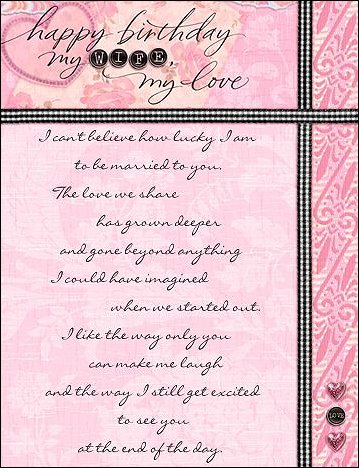 happy birthday
my WIFE,
my love
I can't believe how lucky I am
to be married to you.
The love we share
has grown deeper
and gone beyond anything
I could have imagined
when we started out.
I like the way only you
can make me laugh
and the way I still get excited
to see you
at the end of the day.
LOVE